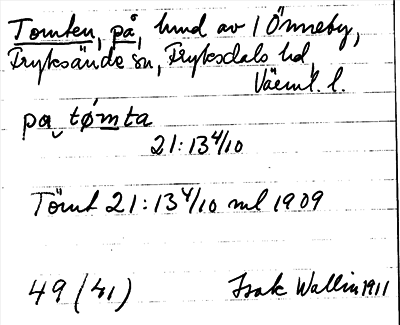 Tomten, på, hmd av 1 Önneby,
Fryksände sn, Fryksdals hd,
Värml. l.
pa tømta
21:13 4/10
Tömt 21:13 4/10 ml 1909
49 (41)
Isak Wallin 1911